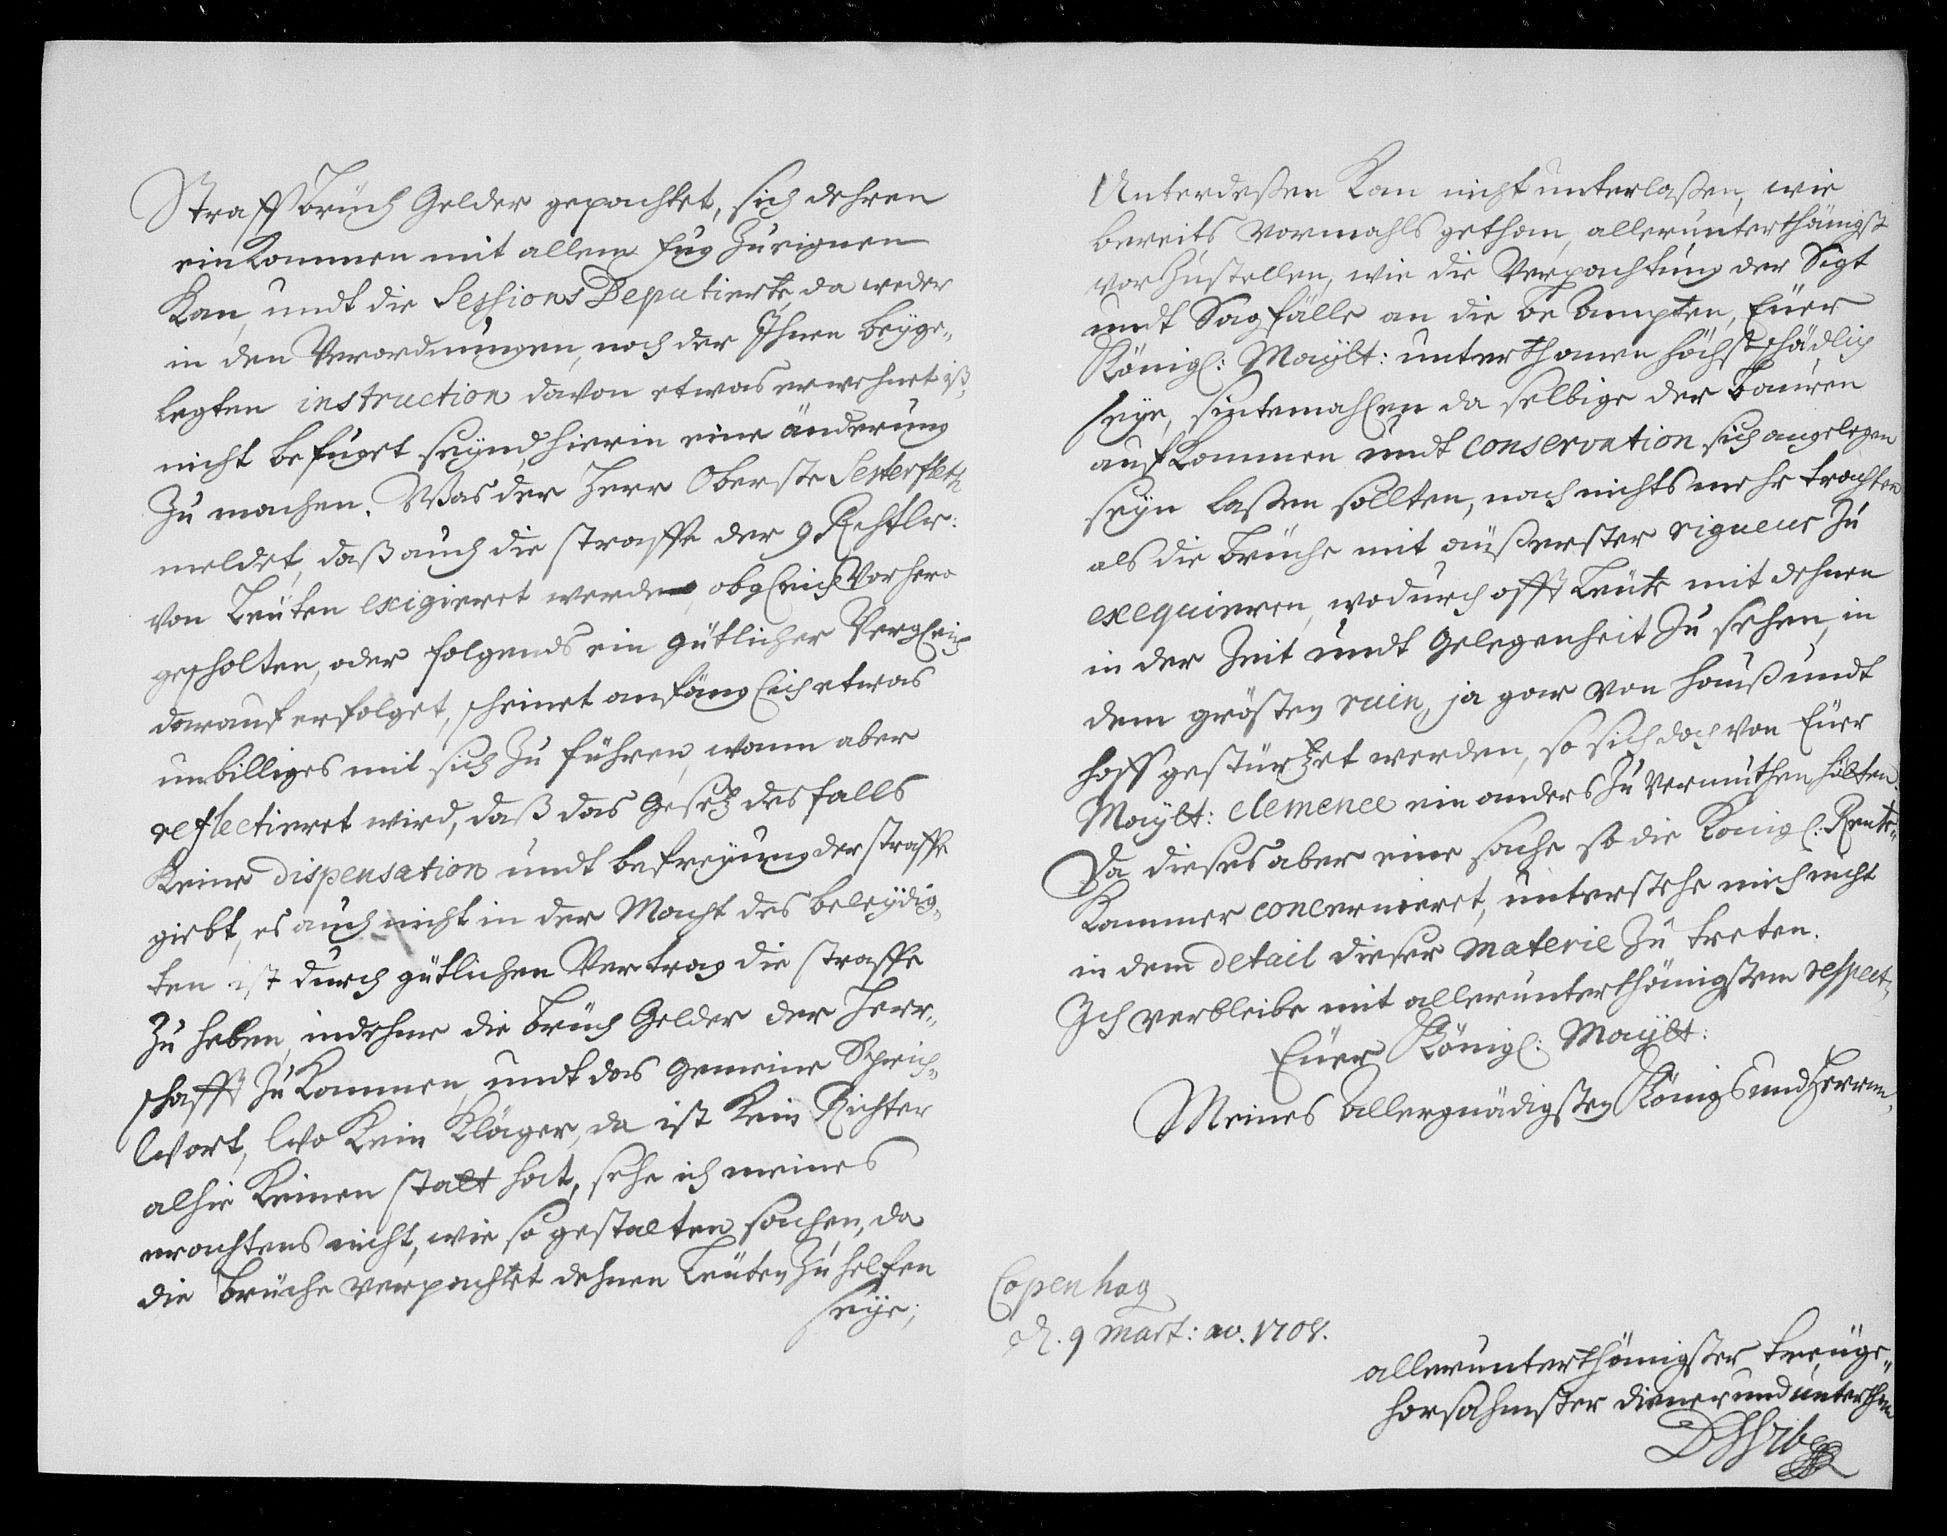 Straff Brüch Gelder gepachtet, sich dehren
ein Kommen mit allem fug Zueignen
Kan, undt die Sessions Deputierte, da weder
in den Verordnungen, noch der Ihnen beyge„
legten instruction davon etwas erwehnet ist,
nicht befuget seynd, hierin eine änderung
Zu machen. Was der Herr Oberste
meldet, daß auch die straffe der 9 Rthlr:
von Leuten exigieret werden, obgleich Vorhero
gescholten, oder folgends ein gütlicher Vergleich
darauf erfolget, scheinet anfänglich etwas
unbilliges mit sich Zu führen, wann aber
reflectieret wird, daß das Gesetz desfalls
Keine dispensation undt befreyung der straffe
giebt, es auch nicht in der Macht des beleydig„
ten ist durch gütlichen Vertrag die straffe
Zu heben, indehme die Brüch Gelder der Herr„
schafft Zu Kommen, undt das gemeine Sprich„
Wort, Wo Kein Kläger, da ist Kein Richter
alhie Keinen statt hat, sehe ich meines
erachtens nicht, wie so gestalten sachen, da
die Brüche verpachtet dehnen Leuten Zu helfen
seye;
Unterdeßen Kan nicht unterlaßen, wie
bereits Vormahls gethan, allerunterthänigst
vorZustellen, wie die Verpachtung der Sigt
undt Sagfälle an die be Ampten, Euer
Königl: Maÿtt: unterthanen höchstschädlich
seye, sintemahlen da selbige der Bauren
auf Kommen undt conservation sich angelegen
seyn laßen sollten, nach nichts mehr trachten
als die Brüche mit äußerster rigueur Zu
exequieren, wodurch offt Leute mit dehnen
in der Zeit undt Gelegenheit Zu sehen, in
dem grösten ruin, ja gar von hauß undt
hoff gestürtzet werden, so sich doch von Euer
Maÿtt: clemence ein anders Zu vermuthen hätten.
Da dieses aber eine sache so die Königl. Rente„
Kammer concernieret, unterstehe mich nicht
in dem detail dieser materie Zu treten.
Ich verbleibe mit allerunterthänigstem respect,
Euer Königl: Maÿtt:
Meines Allergnädigsten Königs und Herrn,
Copenhag
d. 9 mart: ao. 1708.
allerunterthänigster treuge„
horsahmster diener und unterthan